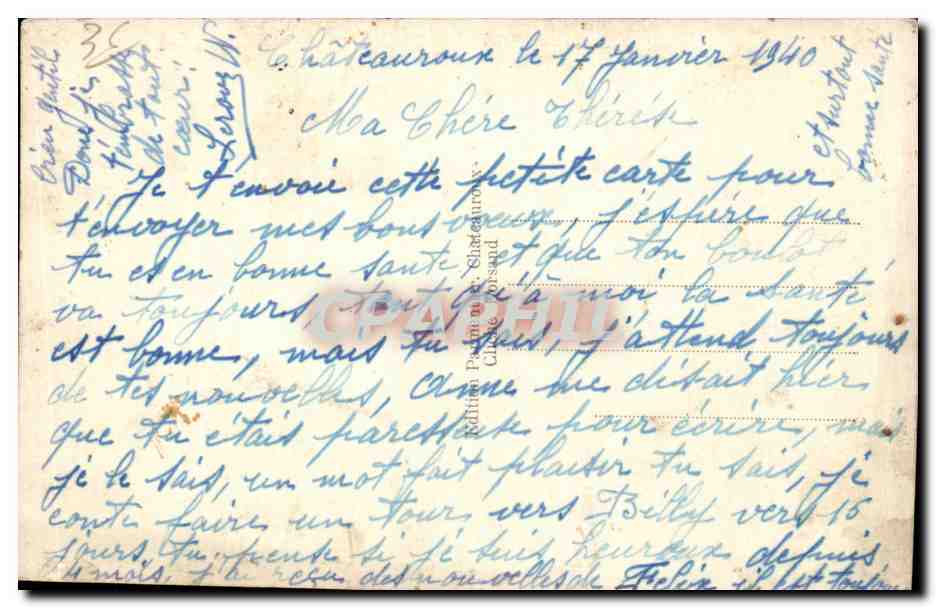 Châteauroux le 17 Janvier 1940
Ma Chère Thérèse
Je t'envoie cette petite carte pour
t'envoyer mes bons vœux, j'espère que
tu es en bonne santé, et que ton boulot
va toujours, tant qu'à moi la santé
est bonne, mais tu sais, j'attend toujours
de tes nouvelles, me disait hier
que tu étais paresseuse pour écrire, mais
je le sais, un mot fait plaisir tu sais, je
conte faire un tour vers Billy vers 15
jours, tu pense si je suis heureux depuis
4 mois, j'ai reçu des nouvelles de Felix il est toujours
bien gentil
Donc je
t'embrasse
de tout
cœur.
Leroux W.
et surtout
bonne santé
35
Edition : Chateauroux
Cliché Dorsand
CPAPHIL